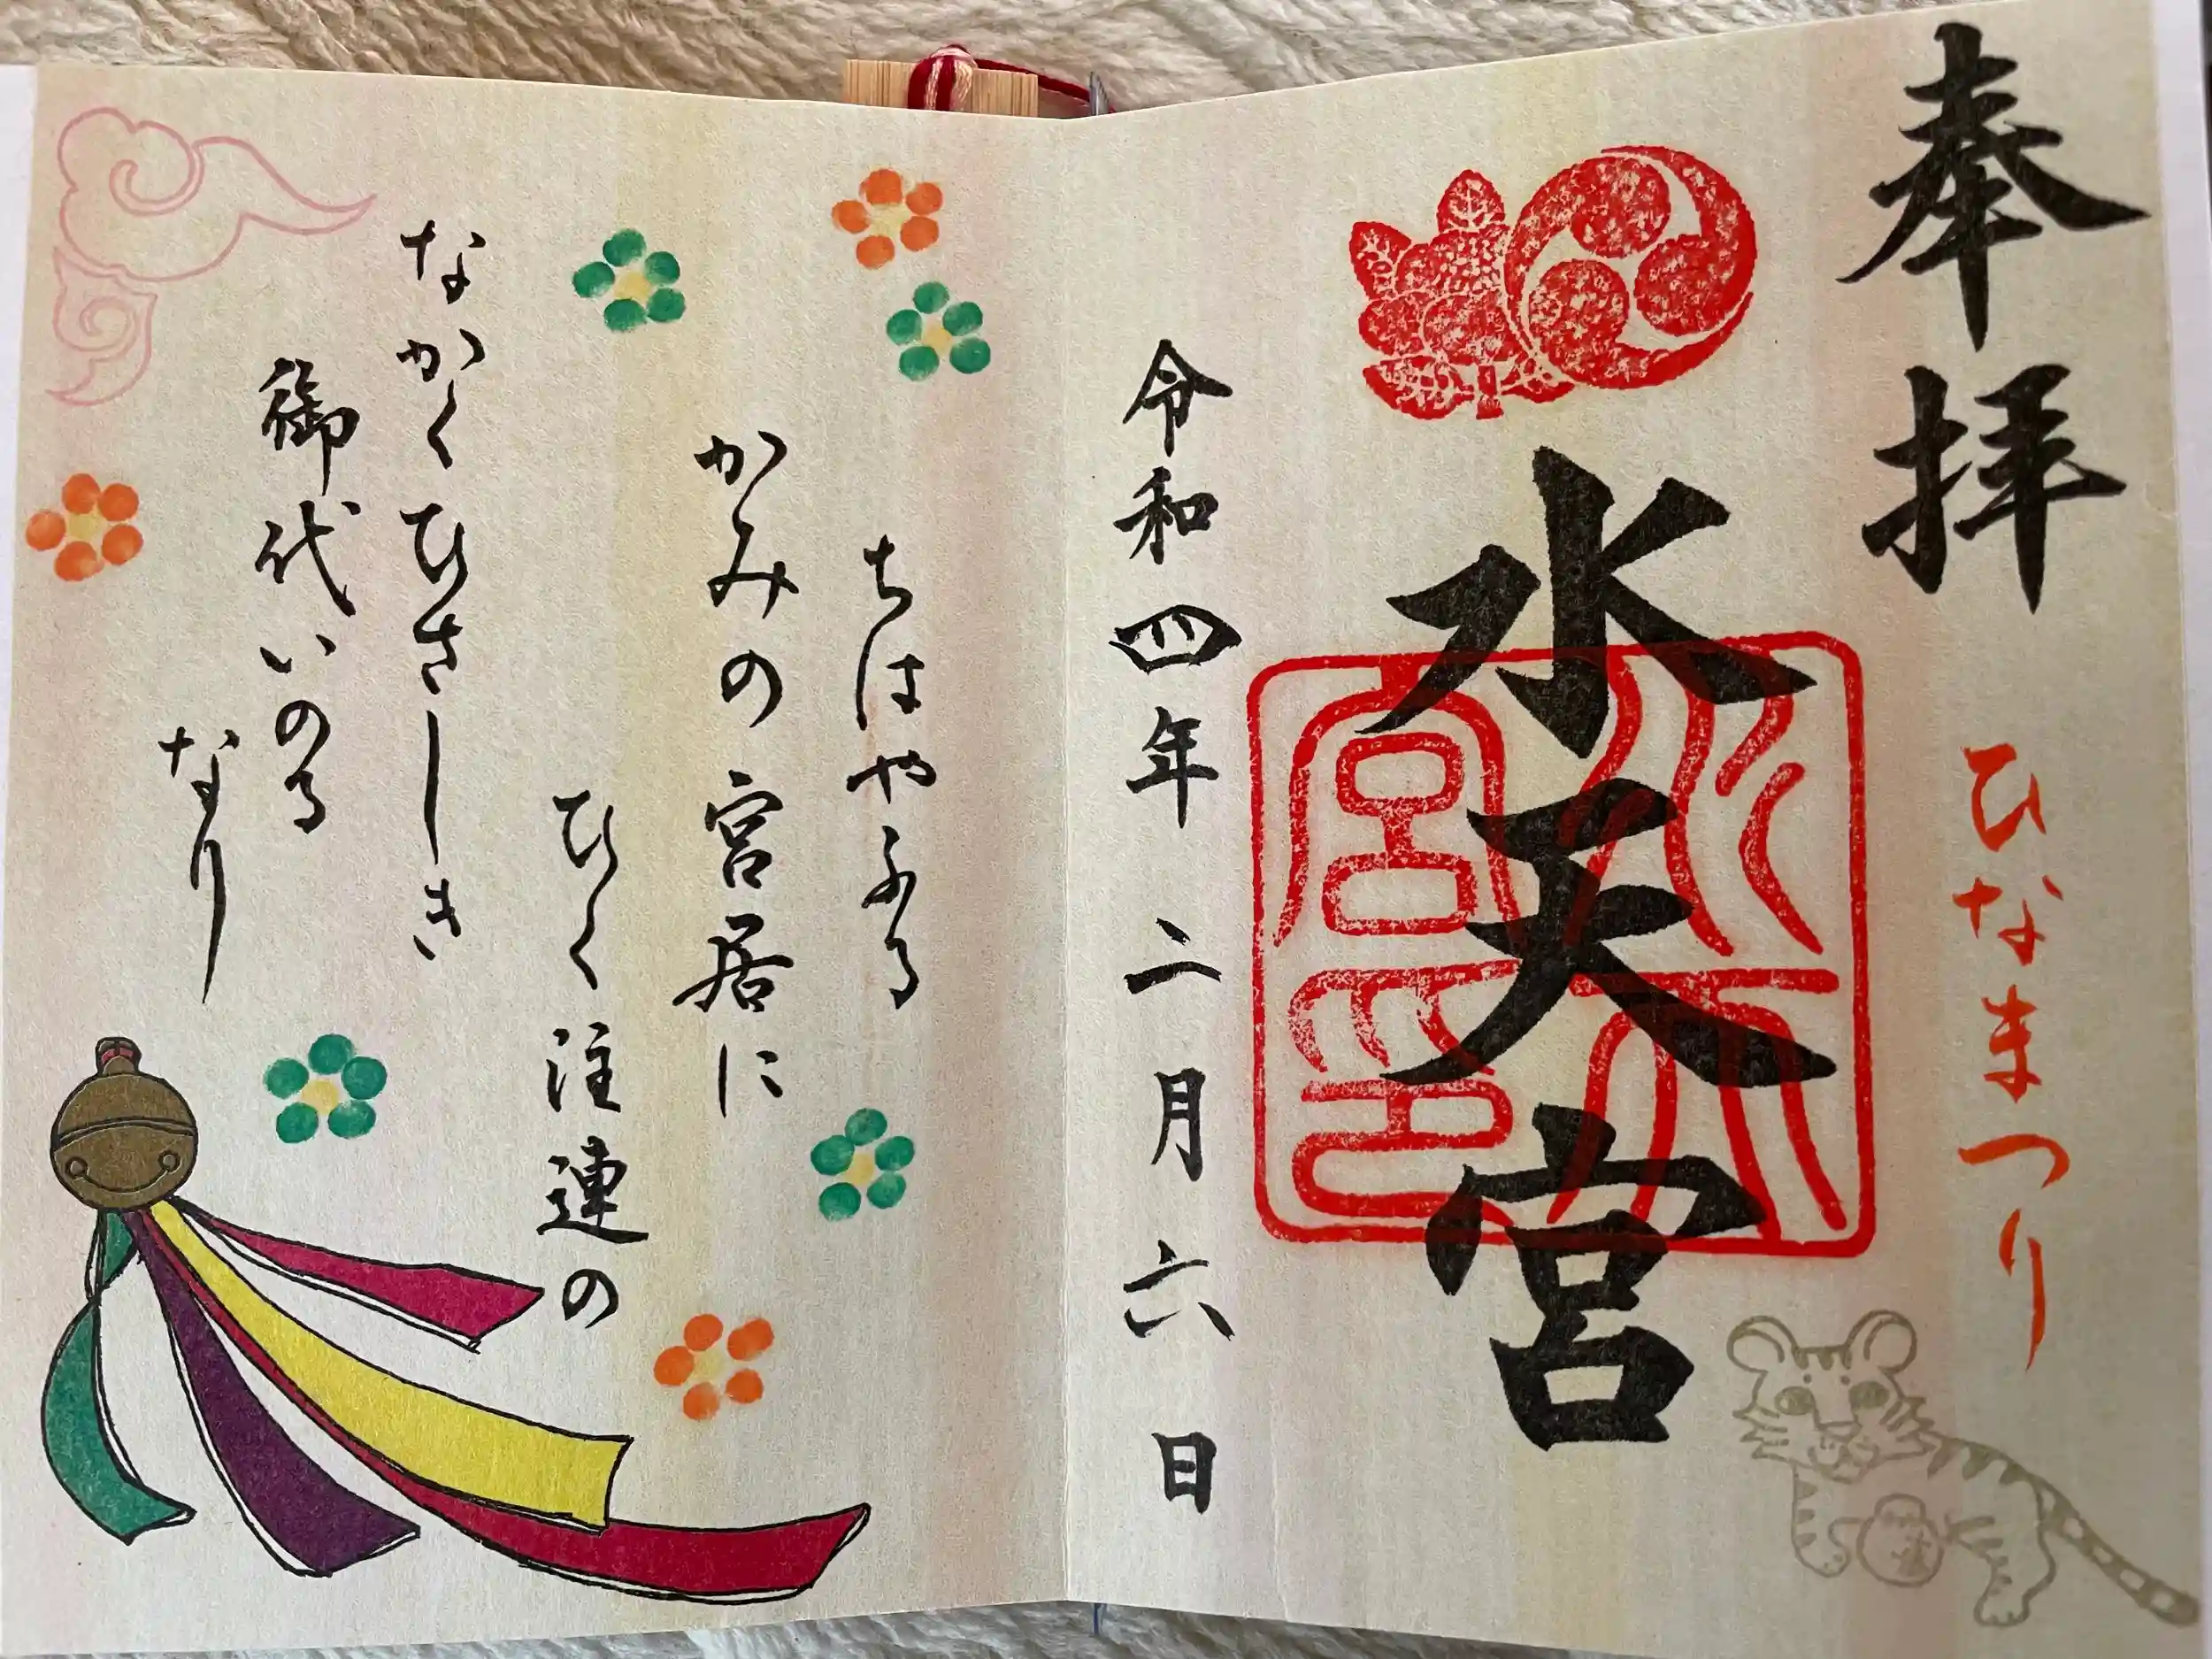 奉拝
ひなまつり
水天宮
水天
宮印
令和四年二月六日
ちはやふる
かみの宮居に
ひく注連の
なかくひさしき
御代いのる
なり